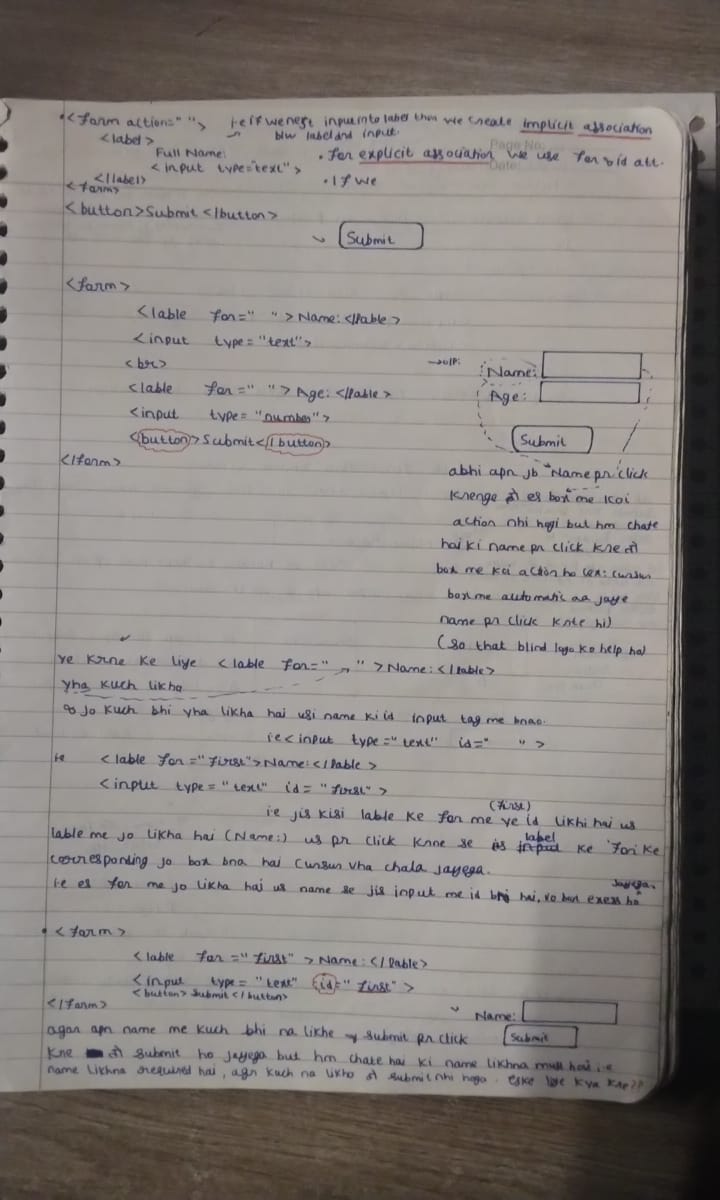 • <form action=" "> i.e if we nest input into label then we create implicit association
<label> b/w label and input.
Page No:
Full Name: • For explicit association we use for & id att.
Date:
<input type="text">
</label> • If we
<form>
<button>Submit </button>
Submit
<form>
<lable for=" " > Name: </lable>
<input type="text">
<br> → o/P: Name:
<lable for=" " > Age: </lable> Age:
<input type= "number">
<button> Submit </button> Submit
</form>
abhi apn jb "Name pr click
krenge to es box me koi
action nhi hogi but hm chate
hai ki name pr click kre to
box me koi action ho (ex: cursur
box me automatic aa jaye
name pr click krte hi)
(so that blind logo ko help ho)
ye krne ke liye <lable for=" " >Name: </lable>
yha kuch likha
jo kuch bhi yha likha hai usi name ki id input tag me bnao.
ie <input type="text" id=" " >
ie <lable for="first">Name: </lable>
<input type="text" id= "first" >
(first)
i.e jis kisi lable ke for me ye id likhi hai us
lable me jo likha hai (Name:) us pr click krne se label ke for ke
corresponding jo box bna hai cursur vha chala jayega.
i.e es for me jo likha hai us name se jis input me id bni hai, vo box ho jayega.
• <form>
<lable for="first" >Name: </lable>
<input type= "text" id="first" >
<button> Submit </button>
</form> Name:
agar apn name me kuch bhi na likhe submit pr click Submit
kre to submit ho jayega but hm chate hai ki name likhna must hai i.e
name likhna required hai, agr kuch na likho to submit nhi hoga. eske liye kya kre??